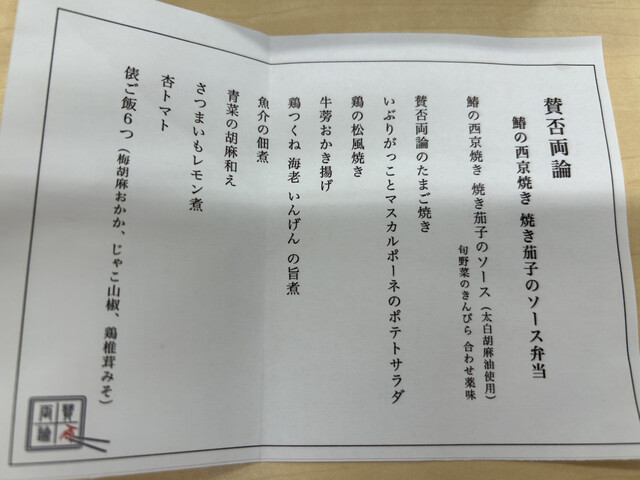 賛否両論
鰆の西京焼き 焼き茄子のソース弁当
鰆の西京焼き 焼き茄子のソース（太白胡麻油使用）
旬野菜のきんぴら 合わせ薬味
賛否両論のたまご焼き
いぶりがっことマスカルポーネのポテトサラダ
鶏の松風焼き
牛蒡おかき揚げ
鶏つくね 海老 いんげん の旨煮
魚介の佃煮
青菜の胡麻和え
さつまいもレモン煮
杏トマト
俵ご飯6つ（梅胡麻おかか、じゃこ山椒、鶏椎茸みそ）
賛否
両論